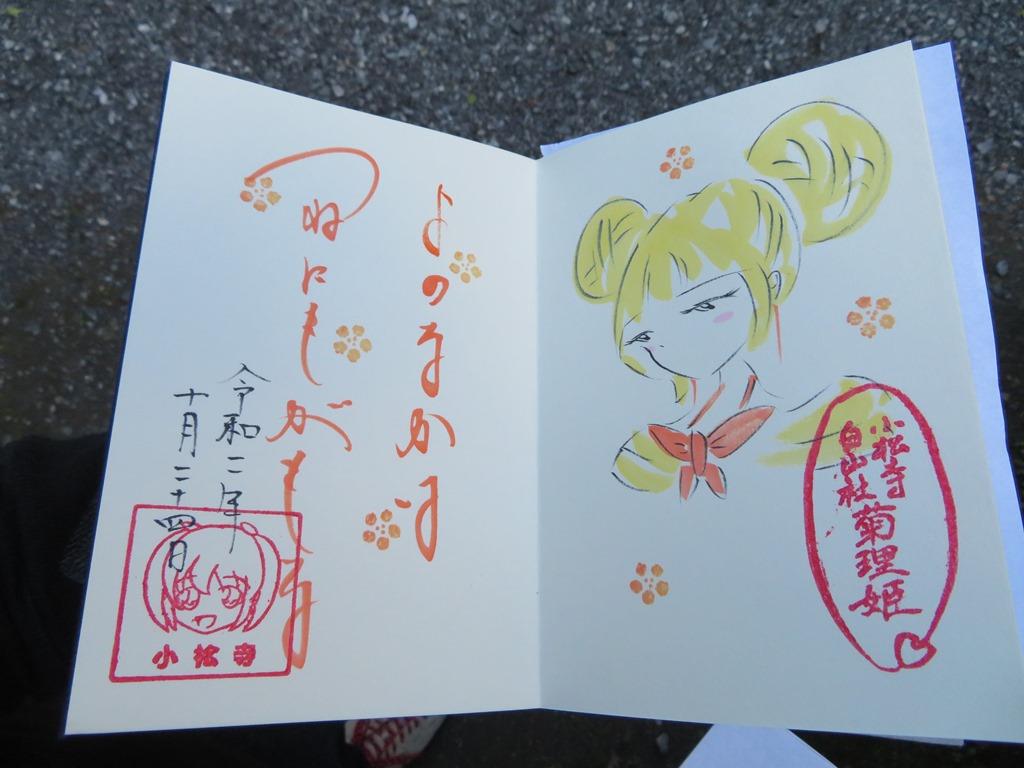 小松寺
白山社菊理姫
よのなかは
つねにもがもな
令和二年
十月二十四日
小松寺